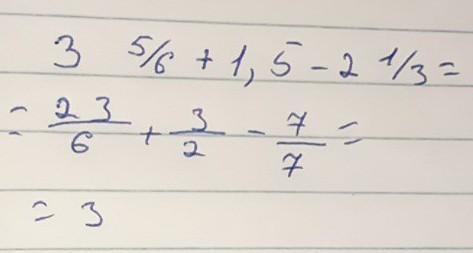 3 5/6 + 1,5 - 2 1/3 =
= 23/6 + 3/2 - 7/7 =
= 3